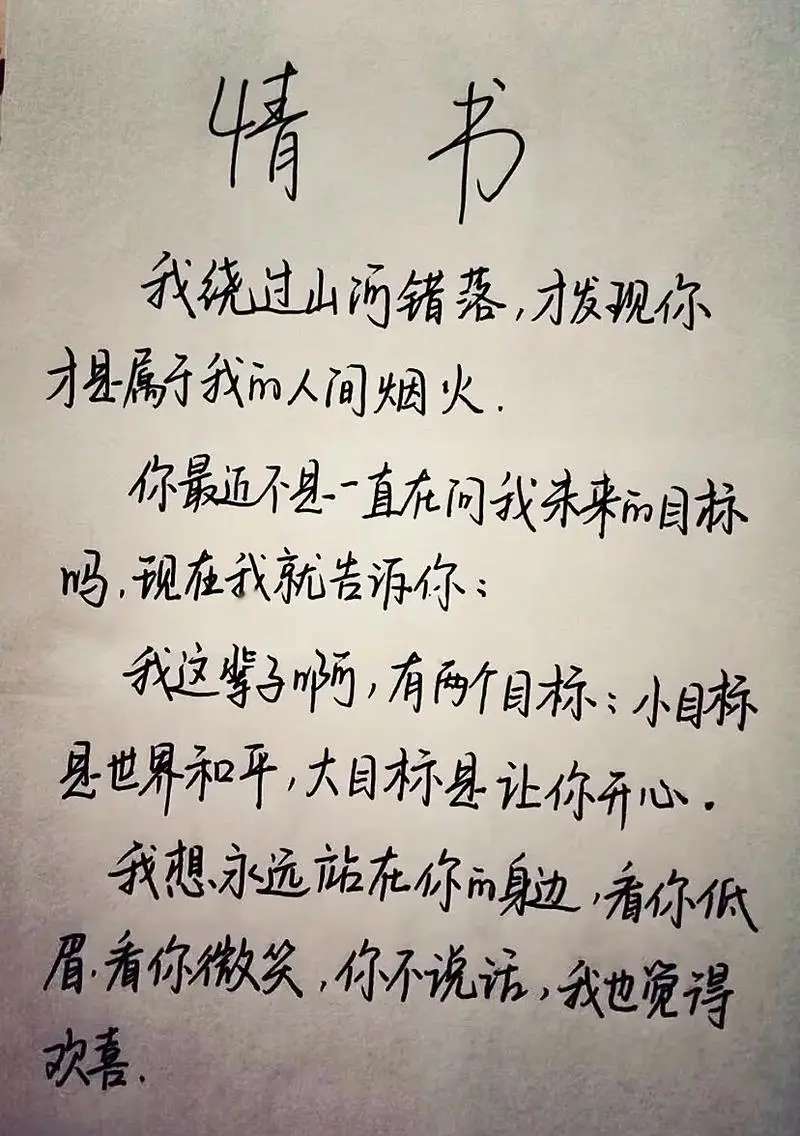 情书
我绕过山河错落,才发现你
才是属于我的人间烟火.
你最近不是一直在问我未来的目标
吗,现在我就告诉你:
我这辈子啊,有两个目标:小目标
是世界和平,大目标是让你开心.
我想永远站在你的身边,看你低
眉.看你微笑,你不说话,我也觉得
欢喜.